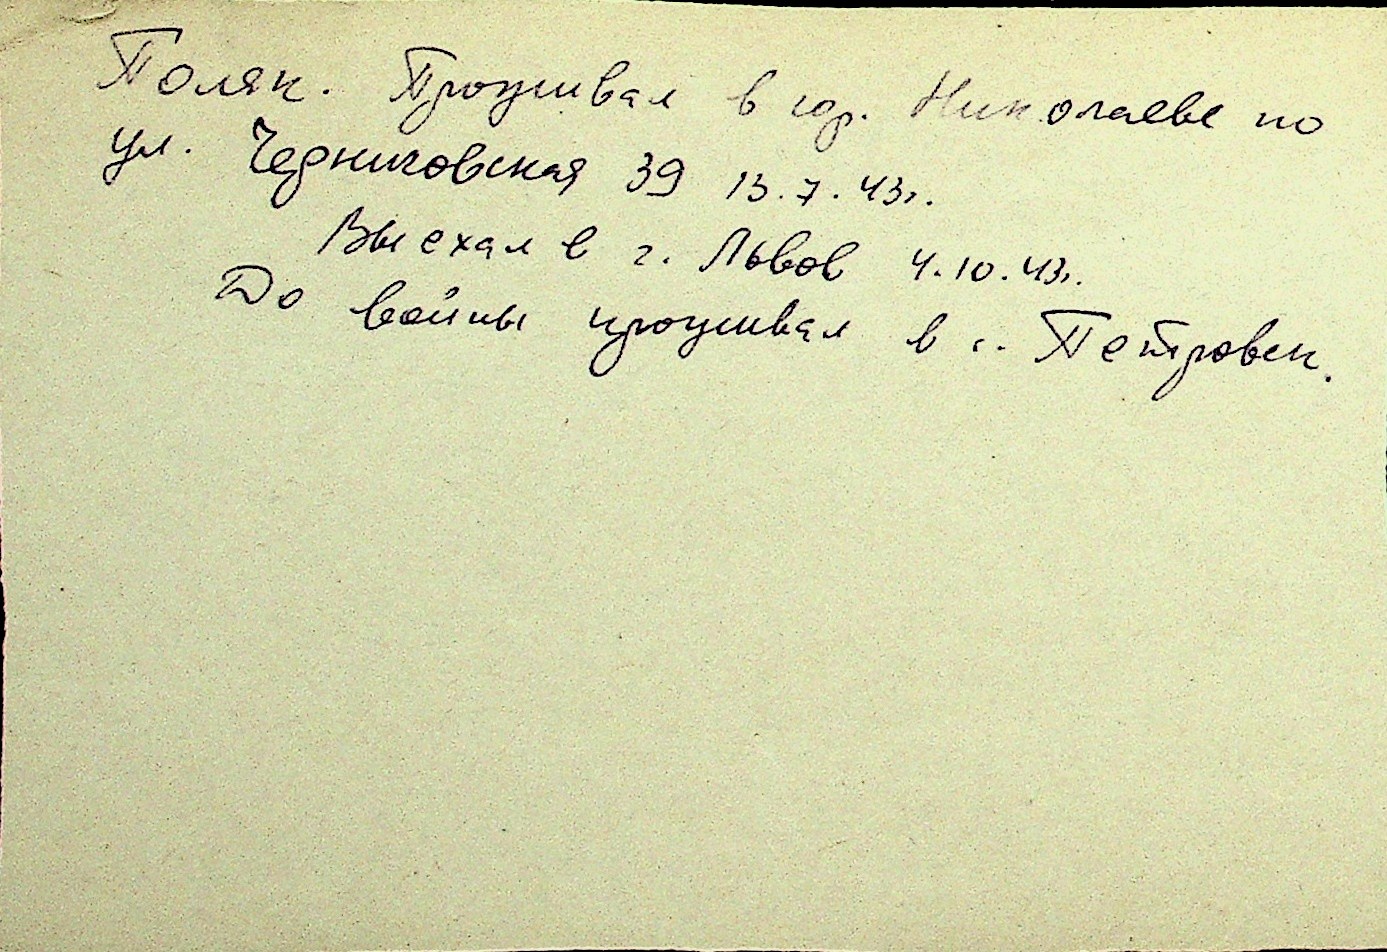 Поляк. Проживал в гор. Николаеве по
ул. Черниговская 39 13.7.43г.
Выехал в г. Львов 4.10.43г.
До войны проживал в г. Петровск.